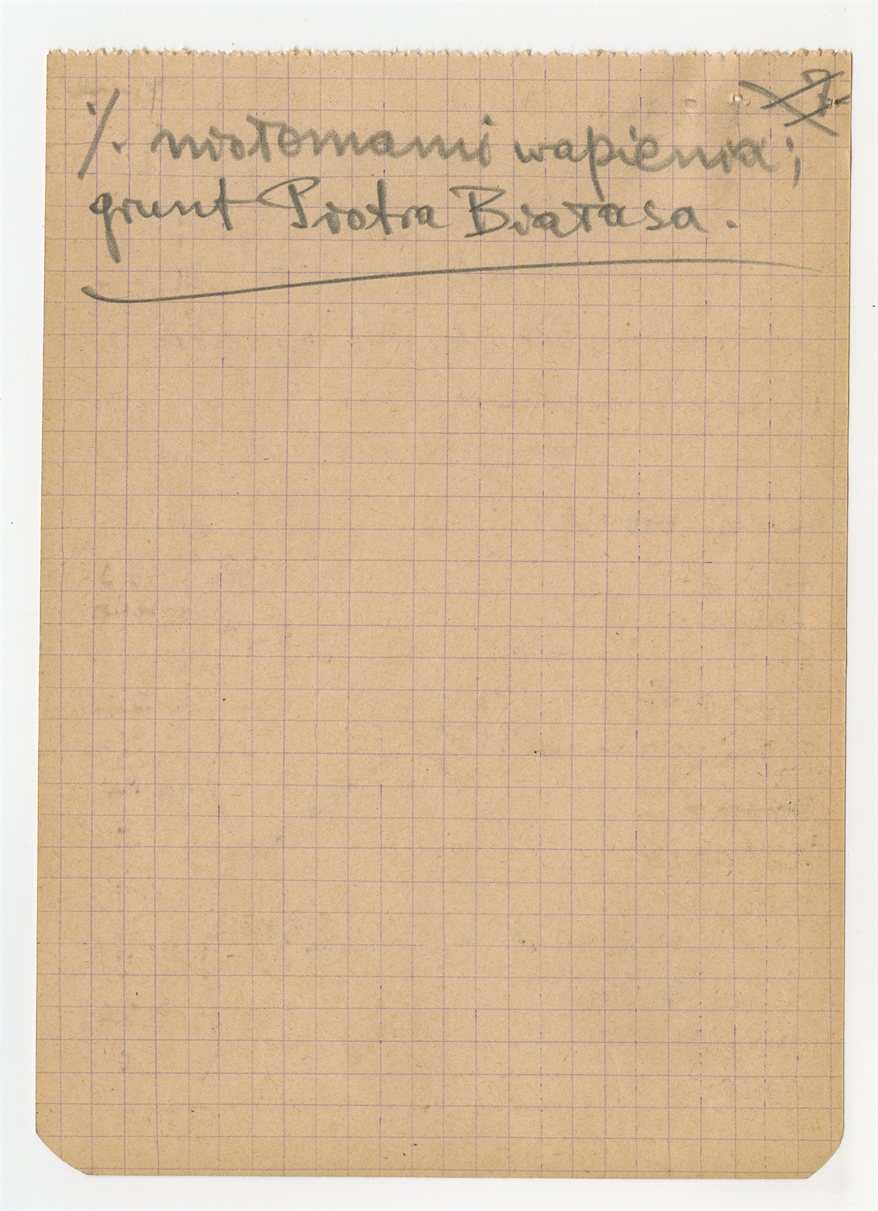 ·/. niołomami wapienia;
grunt Piotra Białasa.